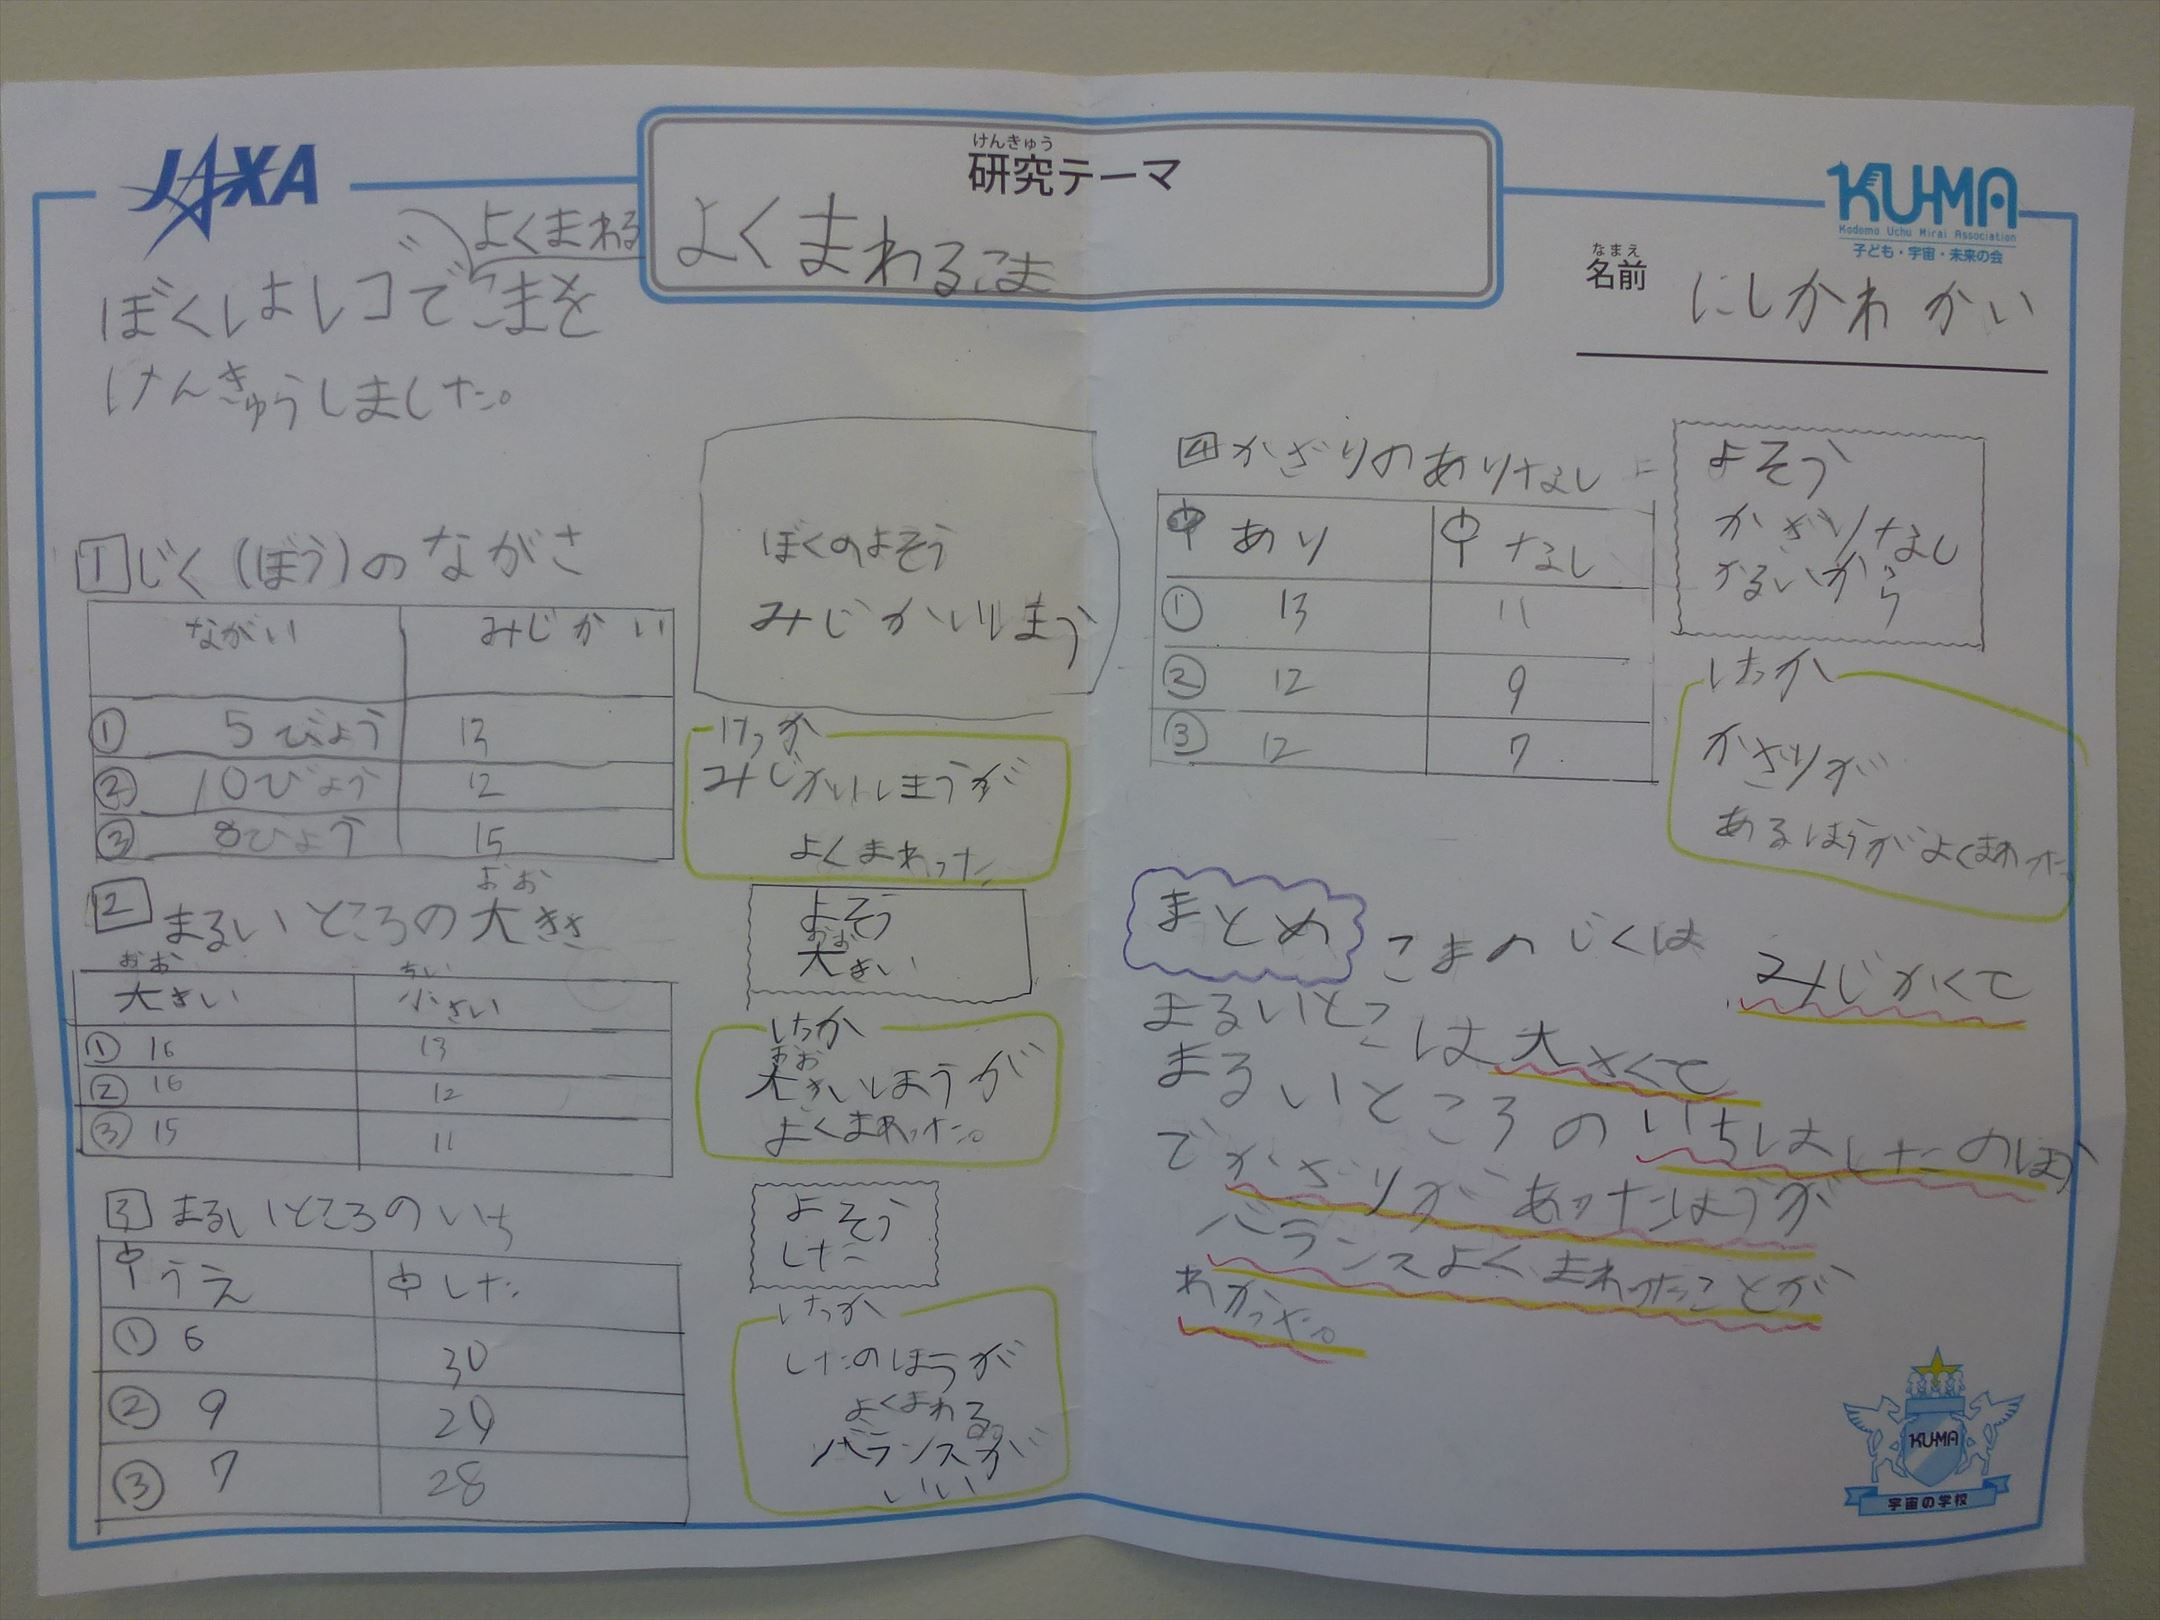 JAXA
けんきゅう
研究テーマ
よくまわるこま
KU-MA
Kodomo Uchu Mirai Association
子ども・宇宙・未来の会
なまえ
名前
にしかわ かい
よくまわる
ぼくはレゴでこまを
けんきゅうしました。
1 じく(ぼう)のながさ
ながい みじかい
① 5びょう 13
② 10びょう 12
③ 8びょう 15
ぼくのよそう
みじかいほう
けっか
みじかいほうが
よくまわった
おお
2 まるいところの大きさ
おお ちい
大きい 小さい
① 16 13
② 16 12
③ 15 11
よそう
おお
大きい
けっか
おお
大きいほうが
よくまわった。
3 まるいところのいち
うえ した
① 6 30
② 9 29
③ 7 28
よそう
した
けっか
したのほうが
よくまわる。
バランスが
いい
4 かざりのありなし
あり なし
① 13 11
② 12 9
③ 12 7
よそう
かざりなし
かるいから
けっか
かざりが
あるほうがよくまわった
まとめ こまのじくは みじかくて
まるいとこは大きくて
まるいところのいちはしたのほう
でかざりがあったほうが
バランスよくまわったことが
わかった。
KU-MA
宇宙の学校